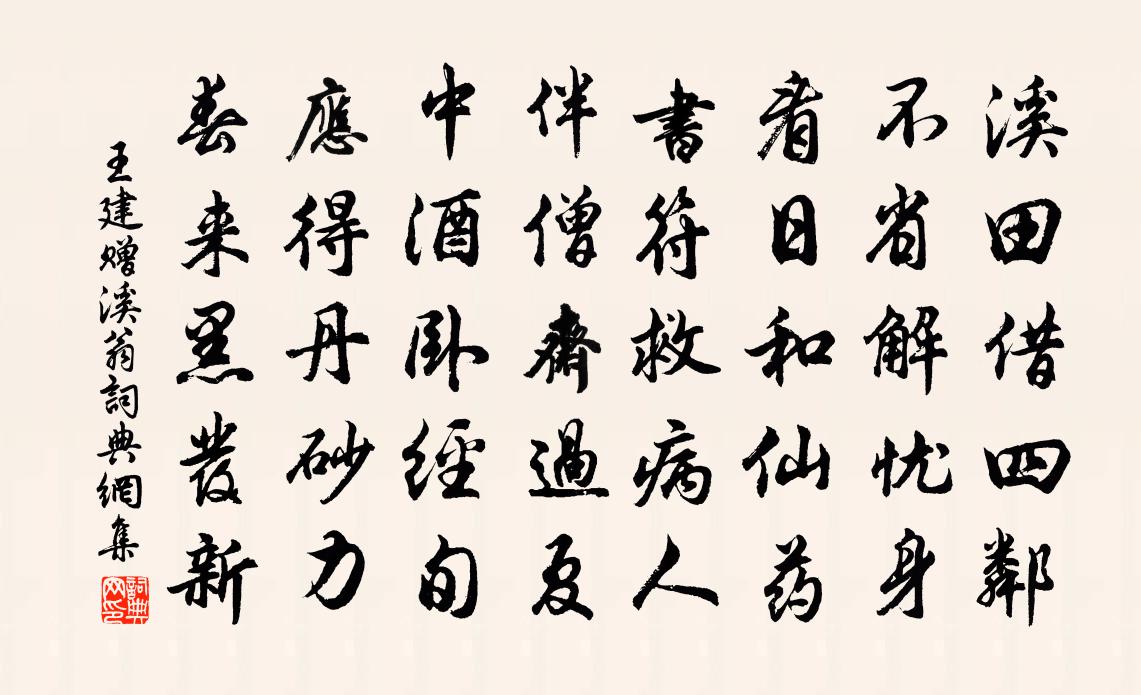 溪田借四鄰
不省解忧身
看日和仙药
書符救病人
伴僧齋過夏
中酒卧經旬
應得丹砂力
春来黑發新
王建赠溪翁詞典網集
詞典网印